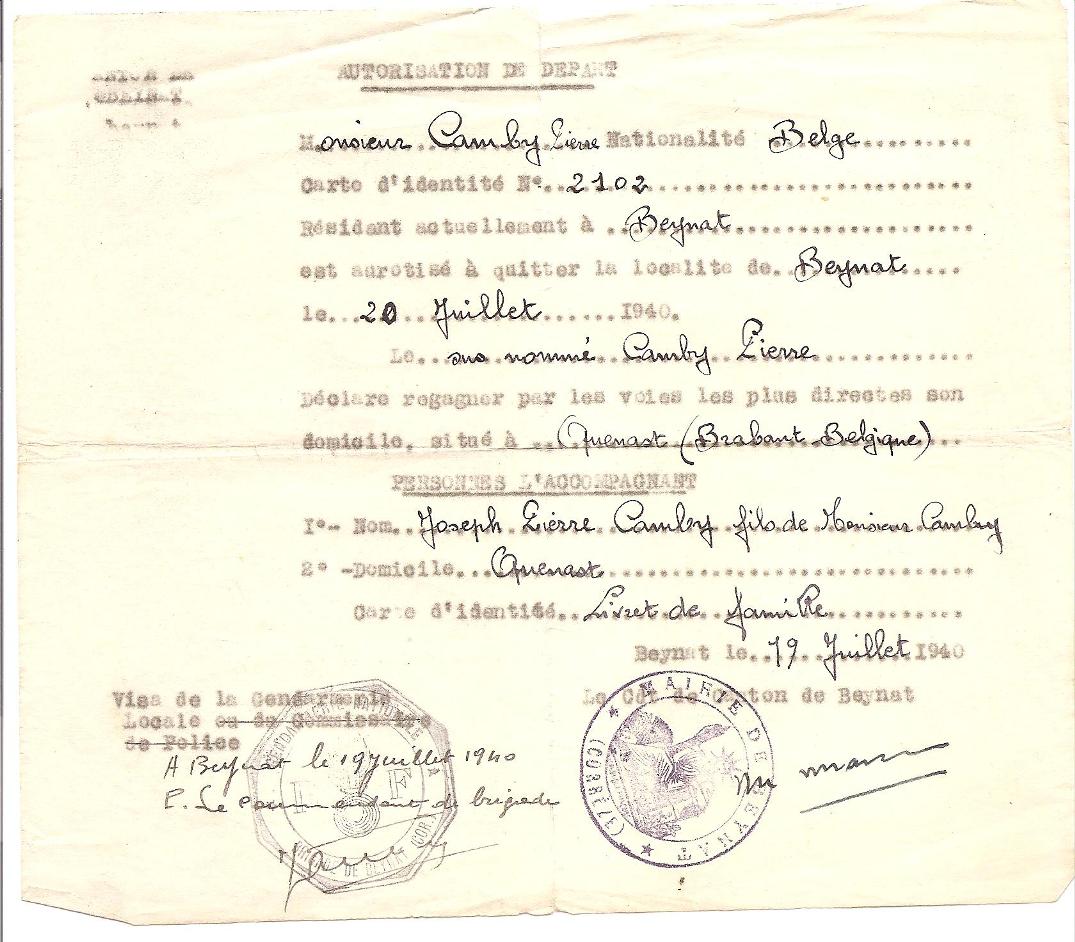 AUTORISATION DE DEPART
Monsieur Camby Pierre Nationalité Belge
Carte d'identité N°. 2102
Résidant actuellement à Beynat
est aurotisé à quitter la localite de Beynat
le 20 Juillet 1940.
Le sus nommé Camby Pierre
Déclare regagner par les voies les plus directes son
domicile, situé à Quenast (Brabant Belgique)
PERSONNES L'ACCOMPAGNANT
I°- Nom Joseph Pierre Camby fils de Monsieur Camby
2° -Domicile Quenast
Carte d'identité Livret de famille
Beynat le 19 Juillet 1940
Visa de la Gendarmerie
Locale ou du Commissaire
de Police
A Beynat le 19 juillet 1940
P. Le commandant de brigade
Le Cdt de Canton de Beynat
MAIRIE DE BEYNAT (CORRÈZE)